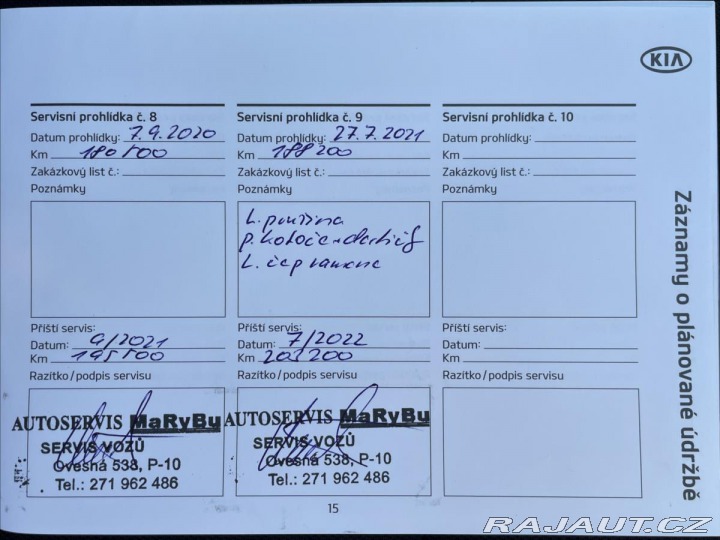 KIA
Servisní prohlídka č. 8
Datum prohlídky: 7.9.2020
Km 180500
Zakázkový list č.:
Poznámky
Příští servis:
Datum: 9/2021
Km 195500
Razítko/podpis servisu
AUTOSERVIS MaRyBu
SERVIS VOZŮ
Ovesná 538, P-10
Tel.: 271 962 486
Servisní prohlídka č. 9
Datum prohlídky: 27.7.2021
Km 188200
Zakázkový list č.:
Poznámky
L. pružina
P. kotouče+destičky
L. čep ramene
Příští servis:
Datum: 7/2022
Km 203200
Razítko/podpis servisu
AUTOSERVIS MaRyBu
SERVIS VOZŮ
Ovesná 538, P-10
Tel.: 271 962 486
Servisní prohlídka č. 10
Datum prohlídky:
Km
Zakázkový list č.:
Poznámky
Příští servis:
Datum:
Km
Razítko/podpis servisu
Záznamy o plánované údržbě
15
RAJAUT.CZ